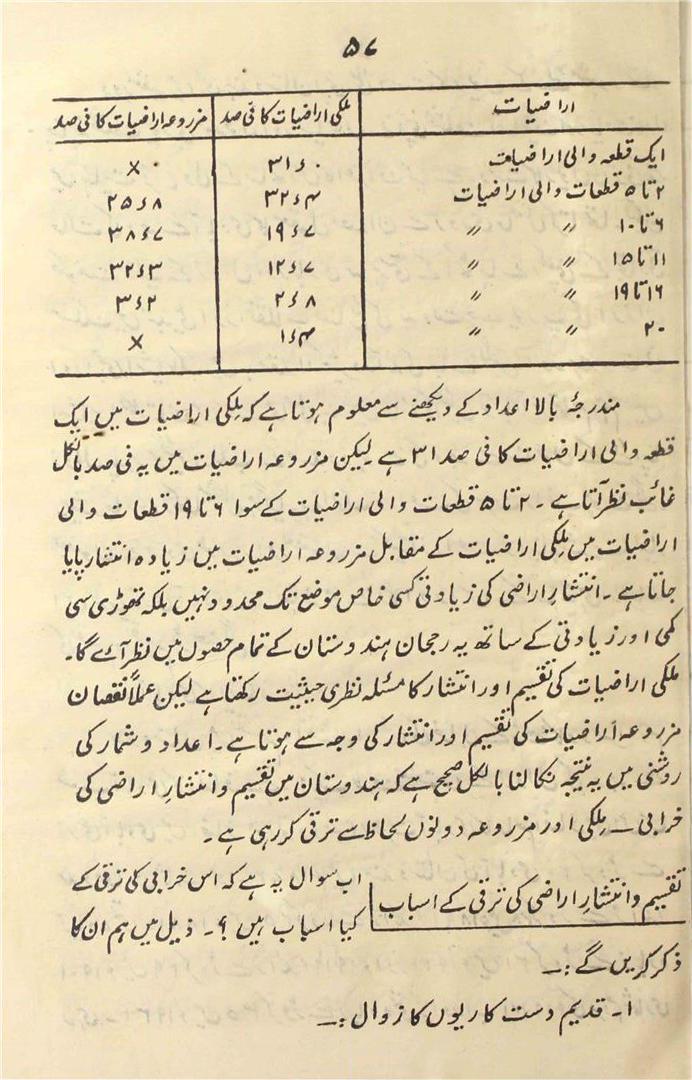 ۵۷
اراضیات ملکی اراضیات کا فی صد مزروعہ اراضیات کا فی صد
ایک قطعہ والی اراضیات ۳۱ء۰ ×
۲ تا ۵ قطعات والی اراضیات ۳۲ء۴ ۲۵ء۸
۶ تا ۱۰ 〃 〃 ۱۹ء۷ ۳۸ء۷
۱۱ تا ۱۵ 〃 〃 ۱۲ء۷ ۳۲ء۳
۱۶ تا ۱۹ 〃 〃 ۲ء۸ ۳ء۲
۲۰ 〃 〃 ۱ء۴ ×
مندرجۂ بالا اعداد کے دیکھنے سے معلوم ہوتا ہے کہ مِلکی اراضیات میں ایک
قطعہ والی اراضیات کا فی صد ۳۱ ہے لیکن مزروعہ اراضیات میں یہ فی صد بالکل
غائب نظر آتا ہے ۔ ۲ تا ۵ قطعات والی اراضیات کے سوا ۶ تا ۱۹ قطعات والی
اراضیات میں مِلکی اراضیات کے مقابل مزروعہ اراضیات میں زیادہ انتشار پایا
جاتا ہے ۔ انتشارِ اراضی کی زیادتی کسی خاص موضع تک محدود نہیں بلکہ تھوڑی سی
کمی اور زیادتی کے ساتھ یہ رجحان ہندوستان کے تمام حصوں میں نظر آئے گا۔
ملکی اراضیات کی تقسیم اور انتشار کا مسئلہ نظری حیثیت رکھتا ہے لیکن عملاً نقصان
مزروعہ اراضیات کی تقسیم اور انتشار کی وجہ سے ہوتا ہے ۔ اعداد و شمار کی
روشنی میں یہ نتیجہ نکالنا بالکل صحیح ہے کہ ہندوستان میں تقسیم و انتشارِ اراضی کی
خرابی ــ مِلکی اور مزروعہ دونوں لحاظ سے ترقی کر رہی ہے ۔
تقسیم و انتشارِ اراضی کی ترقی کے اسباب
اب سوال یہ ہے کہ اس خرابی کی ترقی کے
کیا اسباب ہیں ؟ ۔ ذیل میں ہم ان کا
ذکر کریں گے :ــ
۱۔ قدیم دست کاریوں کا زوال :ــ